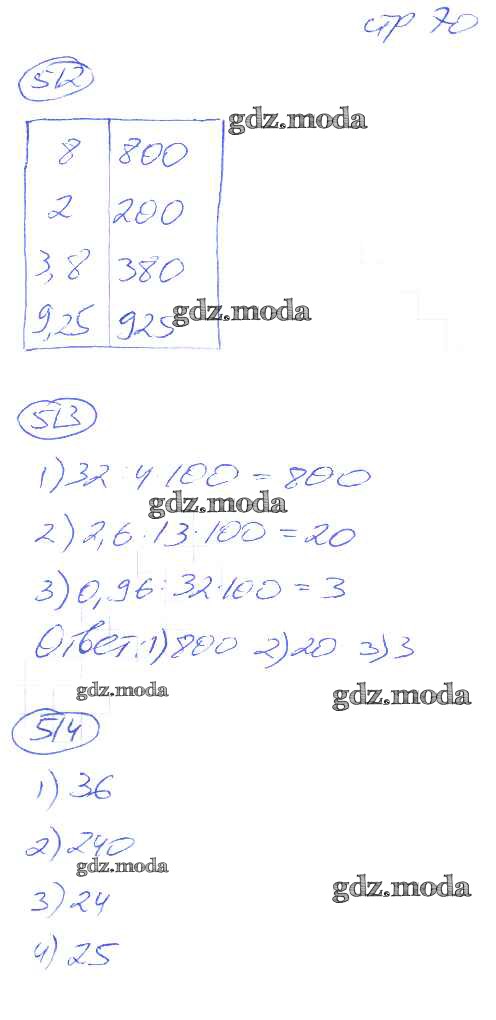 стр 70
512
gdz.moda
8 800
2 200
3,8 380
9,25 925
gdz.moda
513
1) 32 : 4 · 100 = 800
gdz.moda
2) 2,6 · 13 · 100 = 20
3) 0,96 : 32 · 100 = 3
Ответ: 1) 800 2) 20 3) 3
gdz.moda
gdz.moda
514
1) 36
2) 240
gdz.moda
gdz.moda
3) 24
4) 25